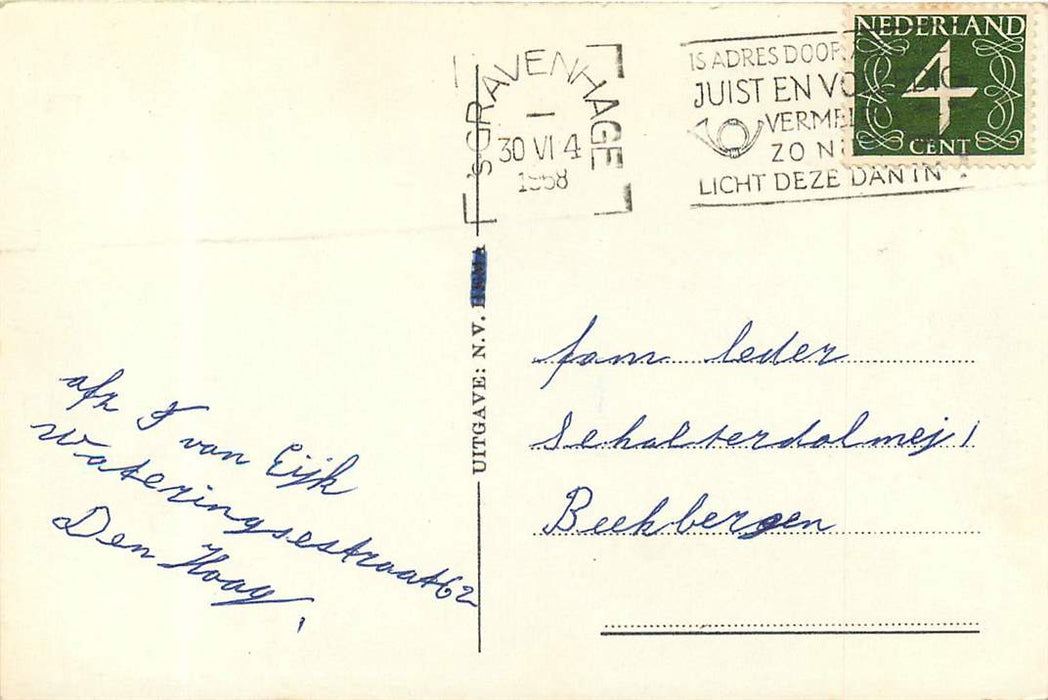 'S GRAVENHAGE
1
30 VI 4
1958
IS ADRES DOOR
JUIST EN VO
VERMEL
ZO N
LICHT DEZE DAN IN
NEDERLAND
4
CENT
UITGAVE: N.V.
afz J van Eijk
Wateringsestraat 62
Den Haag
fam leder
Schalterdalmej 1
Beekbergen